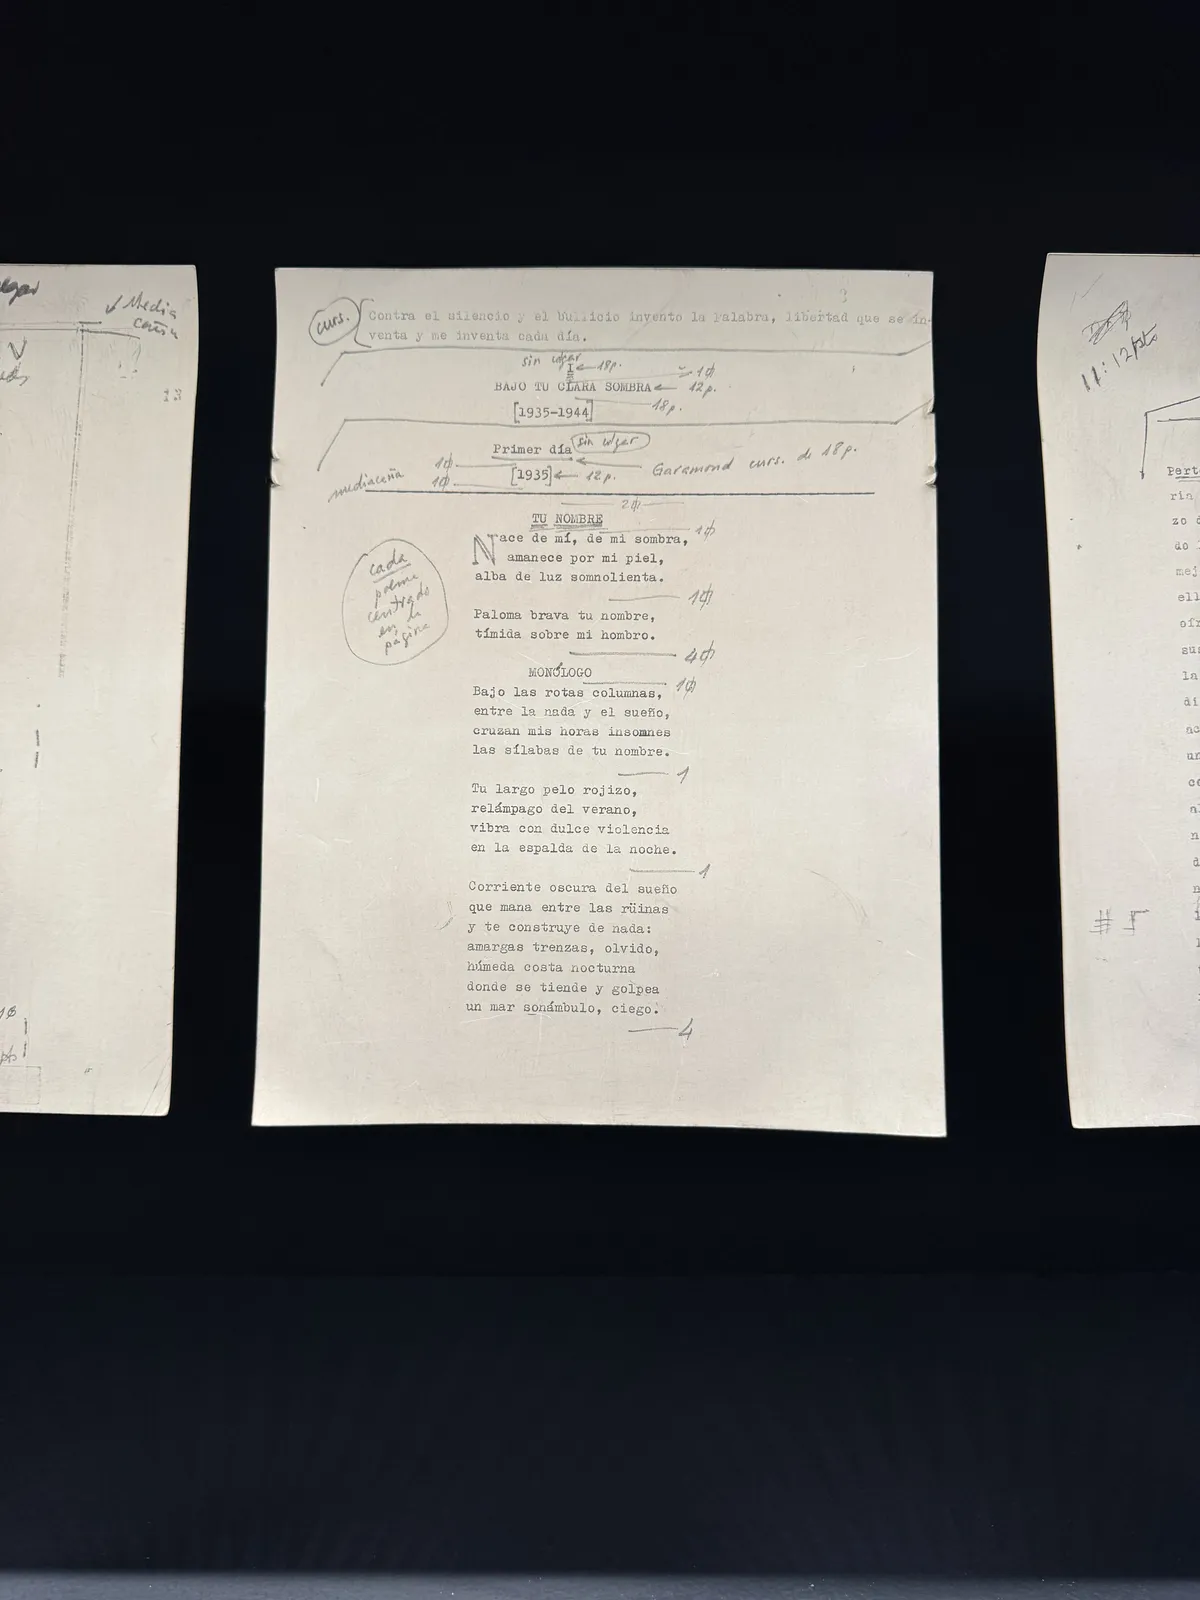 Media
caña
13
3
curs.
Contra el silencio y el bullicio invento la Palabra, libertad que se in-
venta y me inventa cada día.
sin colgar
I ← 18p.
1
BAJO TU CLARA SOMBRA ← 12p.
[1935-1944] 18p.
Primer día sin colgar
Garamond curs. de 18p.
mediacaña
[1935] ← 12p.
2
TU NOMBRE
Nace de mí, de mi sombra,
amanece por mi piel,
alba de luz somnolienta.
Paloma brava tu nombre,
tímida sobre mi hombro.
cada
poema
centrado
en la
página
MONÓLOGO
Bajo las rotas columnas,
entre la nada y el sueño,
cruzan mis horas insomnes
las sílabas de tu nombre.
1
Tu largo pelo rojizo,
relámpago del verano,
vibra con dulce violencia
en la espalda de la noche.
1
Corriente oscura del sueño
que mana entre las rüinas
y te construye de nada:
amargas trenzas, olvido,
húmeda costa nocturna
donde se tiende y golpea
un mar sonámbulo, ciego.
4
11:12pts
rin
mej
ell
sus
la